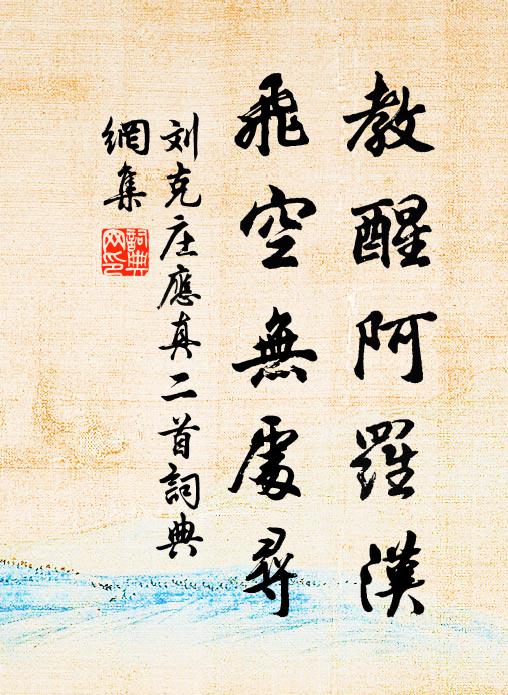 教醒阿羅漢
飛空無處尋
刘克庄應真二首詞典
網集
詞典
网印